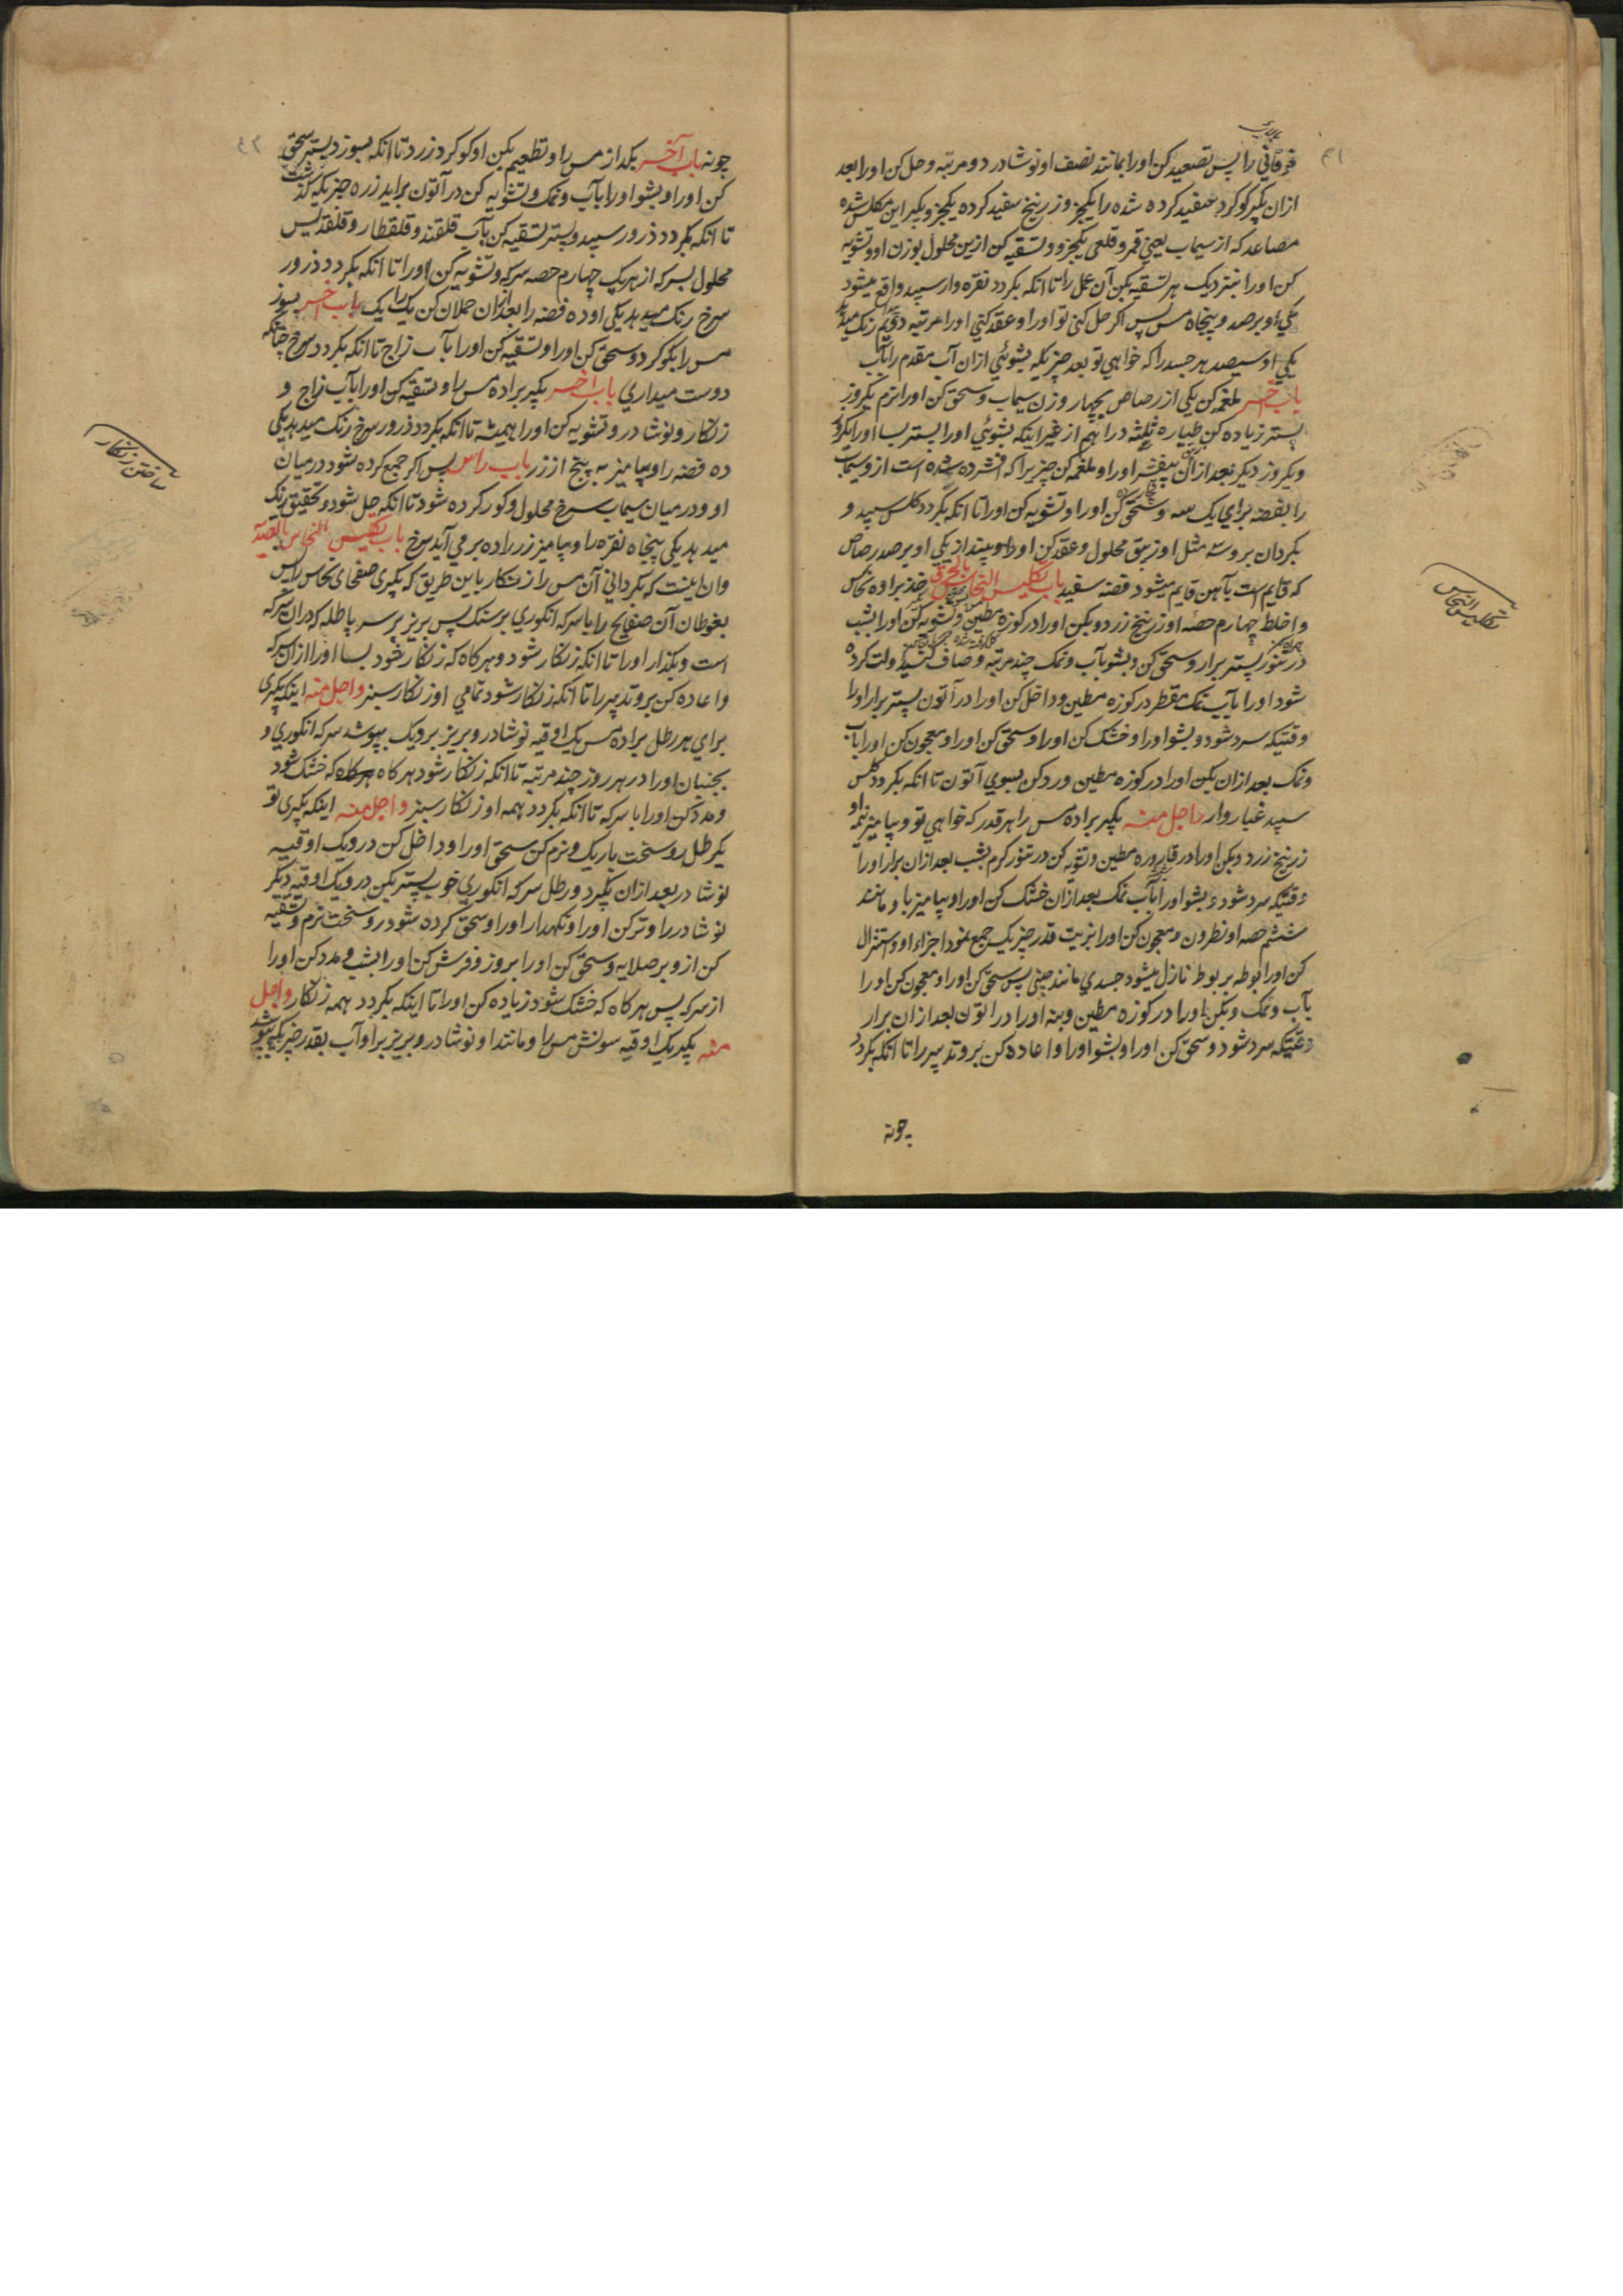 ۴۱
فرقانی را پس تصعید کن اورا بمانند نصف او نوشادر دو مرتبه و حل کن اورا بعد
ازان بکیر کوکرد سفید کرده شده را یکجز و زرنیخ سفید کرده یکجز و بکیر این مکلس شده
مصاعد که از سیماب یعنی قمر و قلعی یکجز و تسقیه کن ازین محلول بوزن او و تشویه
کن اورا بنزدیک هر تسقیه بکن آن عمل را تا انکه بکردد نقره وار سپید واقع میشود
یکی او بر صد و پنجاه مس پس اکر حل کنی تو اورا و عقد کنی اورا مرتبه دویم رنک میدهد
یکی او سیصد هر جسد را که خواهی تو بعد چیزیکه بشوئی ازان آب مقدم را بآب
باب آخر ملغمه کن یکی از رصاص بچهار وزن سیماب و سحق کن اورا نرم یکروز
پستر زیاده کن طیاره ثلثه درانهم از غیر اینکه بشوئی اورا پستر بسا اورا یکروز
و یکروز دیکر بعد ازان بیفشر اورا و ملغمه کن چیزیرا که افشرده شده است ازو سیماب
را بفضه برای یک سه و سحق کن اورا و تشویه کن اورا تا انکه بکردد کلس سپید و
بکردان بروسته مثل او زیبق محلول و عقد کن اورا و بینداز یکی او بر صد رصاص
که قایم است بآهن قایم میشود فضه سفید باب تکلیس النحاس بالحرق خذ براده نحاس
و اخلط چهارم حصه او زرنیخ زرد و بکن اورا در کوزه مطین و تشویه کن اورا بشب
در تنور پستر برار و سحق کن و بشو بآب و نمک چند مرتبه و صاف کنید ولت کرده
شود اورا بآب نمک مقطر در کوزه مطین و داخل کن اورا در آتون پستر برار اورا
وقتیکه سرد شود و بشو اورا و خشک کن اورا و سحق کن اورا و معجون کن اورا بآب
ونمک بعد ازان بکن اورا در کوزه مطین و رد کن بسوی آتون تا انکه بکردد کلس
سپید غبار وار واجل منه بکیر براده مس را هر قدر که خواهی تو و بیامیز نیمه او
زرنیخ زرد و بکن اورا در قاروره مطین و تشویه کن در تنور کرم بشب بعد ازان برار اورا
وقتیکه سرد شود و بشو اورا بآب نمک بعد ازان خشک کن اورا و بیامیز باو مانند
ششم حصه او نطرون و معجون کن اورا بزیت قدر چیزیکه جمع نمود اجزاء او و استنزال
کن اورا بوطه بر بوط نازل میشود جسدی مانند چینی پس سحق کن اورا و معجون کن اورا
بآب و نمک و بکن اورا در کوزه مطین و بنه اورا در اتون بعد ازان برار
وقتیکه سرد شود و سحق کن اورا و بشو اورا و اعاده کن بروتدبیر را تا انکه بکردد
چونه
تکلیس النحاس
۴۲
چونه باب آخر بکداز مس را و تطعیم بکن او کوکرد زرد تا انکه بسوزد پستر سحق
کن اورا و بشو اورا بآب و نمک و تشویه کن در آتون براید زره چیزیکه کذشت
تا انکه بکردد ذرور سپید و پستر تسقیه کن بآب قلقند و قلقطار و قلقدیس
محلول بسرکه از هر یک چهارم حصه سرکه و تشویه کن اورا تا انکه بکردد ذرور
سرخ رنک میدهد یکی او ده فضه را بعد ازان حملان کن یک را یک باب آخر بسوز
مس را بکوکرد و سحق کن اورا و تسقیه کن اورا بآب زاج تا انکه بکردد سرخ چنانکه
دوست میداری باب آخر بکیر براده مس را و تسقیه کن اورا بآب زاج و
زنکار و نوشادر و تشویه کن اورا همیشه تا انکه بکردد ذرور سرخ رنک میدهد یکی
ده فضه را و بیامیز به پنج از زر باب راس پس اکر جمع کرده شود درمیان
او و درمیان سیماب سرخ محلول و کور کرده شود تا انکه حل شود و تحقیق رنک
میدهد یکی پنجاه نقره را و بیامیز زر را ده بر می آید سرخ باب تکلیس النحاس بالصدیة
وان اینست که بکردانی آن مس را زنکار باین طریق که بکیری صفحای نحاس را پس
بغوطان آن صفایح را با سرکه انکوری برسنک پس بریز بر سر باطله که دران سرکه
است و بکذار اورا تا انکه زنکار شود و هرکاه که زنکار خود بسا اورا ازان سرکه
و اعاده کن بروتدبیر را تا انکه زنکار شود تمامی او زنکار سبز واجل منه اینکه بکیری
برای هر رطل براده مس یک اوقیه نوشادر و بریز بر دیک بپوشد سرکه انکوری و
بجنبان اورا در هر روز چند مرتبه تا انکه زنکار شود هرکاه که خشک شود
و مدد کن اورا با سرکه تا انکه بکردد همه او زنکار سبز واجل منه اینکه بکیری تو
یکرطل روسخت باریک و نرم کن سحق اورا و داخل کن درو یک اوقیه
نوشادر بعد ازان بکیرد و رطل سرکه انکوری خوب پستر بکن درو یک اوقیه دیکر
نوشادر را و تر کن اورا و نکهدار اورا و سحق کرده شود روسخت نرم و تسقیه
کن ازو بر صلایه و سحق کن اورا بروز و فرش کن اورا بشب و مدد کن اورا
از سرکه پس هرکاه که خشک شود زیاده کن اورا تا اینکه بکردد همه زنکار واجل
منه بکیر یک اوقیه سونش مس را و مانند او نوشادر و بریز براو آب بقدر چیزیکه بپوشد
ساختن زنکار